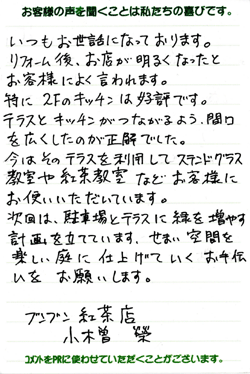 お客様の声を聞くことは私たちの喜びです。
いつもお世話になっております。
リフォーム後、お店が明るくなったと
お客様によく言われます。
特に 2Fのキッチンは好評です。
テラスとキッチンがつながるよう、間口
を広くしたのが正解でした。
今はそのテラスを利用してステンドグラス
教室や紅茶教室などお客様に
お使いいただいています。
次回は、駐車場とテラスに緑を増やす
計画を立てています。せまい空間を
楽しい庭に仕上げていくお手伝
いをお願いします。
ブンブン紅茶店
小木曽 榮
コメントをPRに使わせていただくことがございます。